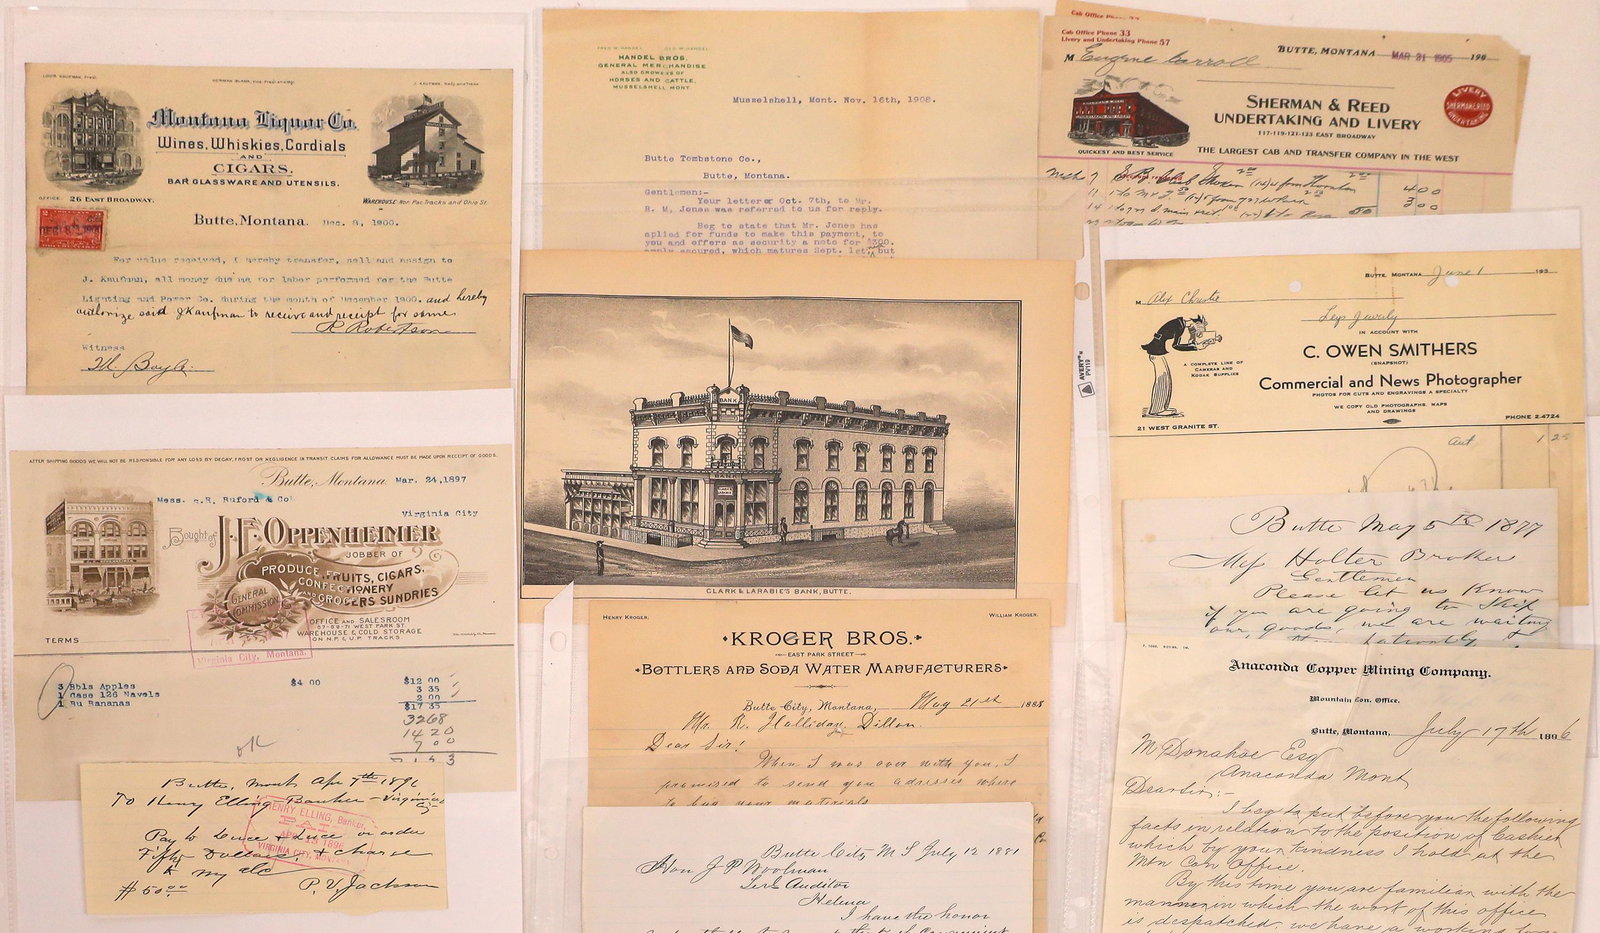 LOUIS KAUFMAN, Prest.
HERMAN BLANK, Vice-Prest and Mgr.
J. KAUFMAN, Secy and Treas
Montana Liquor Co.
Wines, Whiskies, Cordials
AND
CIGARS.
BAR GLASSWARE AND UTENSILS.
OFFICE: 26 EAST BROADWAY.
WAREHOUSE: Nor. Pac. Tracks and Ohio St.
Butte, Montana. Dec. 8, 1900.
For value received, I hereby transfer, sell and assign to
J. Kaufman, all money due me for labor performed for the Butte
Lighting and Power Co. during the month of December 1900. and hereby
authorize said J Kaufman to receive and receipt for same
R Robertson
Witness
AFTER SHIPPING GOODS WE WILL NOT BE RESPONSIBLE FOR ANY LOSS BY DECAY, FROST OR NEGLIGENCE IN TRANSIT. CLAIMS FOR ALLOWANCE MUST BE MADE UPON RECEIPT OF GOODS.
Butte, Montana. Mar. 24, 1897
Mess. R. Buford & Co
Virginia City
Bought of J. F. OPPENHEIMER
JOBBER OF
PRODUCE, FRUITS, CIGARS,
CONFECTIONERY
AND GROCERS SUNDRIES
GENERAL COMMISSION
OFFICE AND SALESROOM
67-69-71 WEST PARK ST
WAREHOUSE & COLD STORAGE
ON N.P. & U.P. TRACKS
Virginia City, Montana.
TERMS
3 Bbls Apples $4 00 $12 00
1 Case 126 Navels 3 35
1 Bu Bananas 2 00
$17 35
3268
1420
700
OK
Butte, Mont Apr 7th 1896
To Henry Elling Banker - Virginia
Pay to Luce & Luce or order
Fifty Dollars, & charge
to my a/c
$50.00 P. V. Jackson
HENRY ELLING, Banker,
PAID
APR 13 1896
VIRGINIA CITY, MONTANA
FRED W. HANDEL GEO. W. HANDEL
HANDEL BROS.
GENERAL MERCHANDISE
ALSO GROWERS OF
HORSES AND CATTLE,
MUSSELSHELL MONT.
Musselshell, Mont. Nov. 16th, 1908.
Butte Tombstone Co.,
Butte, Montana.
Gentlemen:-
Your letter of Oct. 7th, to Mr.
R. M. Jones was referred to us for reply.
Beg to state that Mr. Jones has
aplied for funds to make this payment, to
you and offers as security a note for $300.
amply secured, which matures Sept. 1st, but
BANK
CLARK & LARABIE'S BANK, BUTTE.
HENRY KROGER. WILLIAM KROGER.
KROGER BROS.
EAST PARK STREET
BOTTLERS AND SODA WATER MANUFACTURERS
Butte City, Montana, May 21st 1888
Mr. R. Halliday, Dillon.
Dear Sir!
When I was over with you, I
promised to send you adresses where
to buy your materials
Butte City M T July 12 1881
Hon J P Woolman
Ter Auditor
Helena
I have the honor
Cab Office Phone 33
Livery and Undertaking Phone 57
BUTTE, MONTANA MAR 31 1905 190
M Eugene Carroll
SHERMAN & REED
UNDERTAKING AND LIVERY
117-119-121-123 EAST BROADWAY
QUICKEST AND BEST SERVICE
THE LARGEST CAB AND TRANSFER COMPANY IN THE WEST
LIVERY
SHERMAN & REED
UNDERTAKING
400
300
BUTTE, MONTANA June 1 193
M Alex Christie
Leys Jewerly
IN ACCOUNT WITH
C. OWEN SMITHERS
(SNAPSHOT)
A COMPLETE LINE OF
CAMERAS AND
KODAK SUPPLIES
Commercial and News Photographer
PHOTOS FOR CUTS AND ENGRAVINGS A SPECIALTY
WE COPY OLD PHOTOGRAPHS, MAPS
AND DRAWINGS
21 WEST GRANITE ST. PHONE 2-4724
1 25
AVERY PV119
Butte May 5th 1877
Mess Holter Brother
Gentlemen
Please let us know
if you are going to Ship
our goods, we are waiting
Anaconda Copper Mining Company.
Mountain Con. Office.
Butte, Montana, July 17th 1896
M Donahoe Esq
Anaconda Mont
Dear Sir:-
I beg to put before you the following
facts in relation to the position of Cashier
which by your kindness I hold at the
Mtn Con Office.
By this time you are familiar with the
manner in which the work of this office
is despatched. we have a working